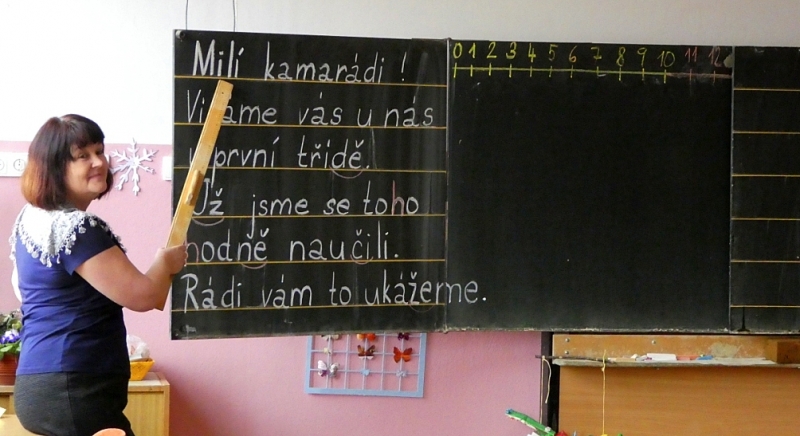 Milí kamarádi!
Vítáme vás u nás
v první třídě.
Už jsme se toho
hodně naučili.
Rádi vám to ukážeme.
0 1 2 3 4 5 6 7 8 9 10 11 12